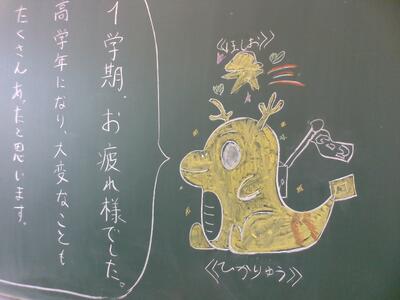 １学期、お疲れ様でした。
高学年になり、大変なことも
たくさんあったと思います。
《ほしお》
《ひかりゅう》